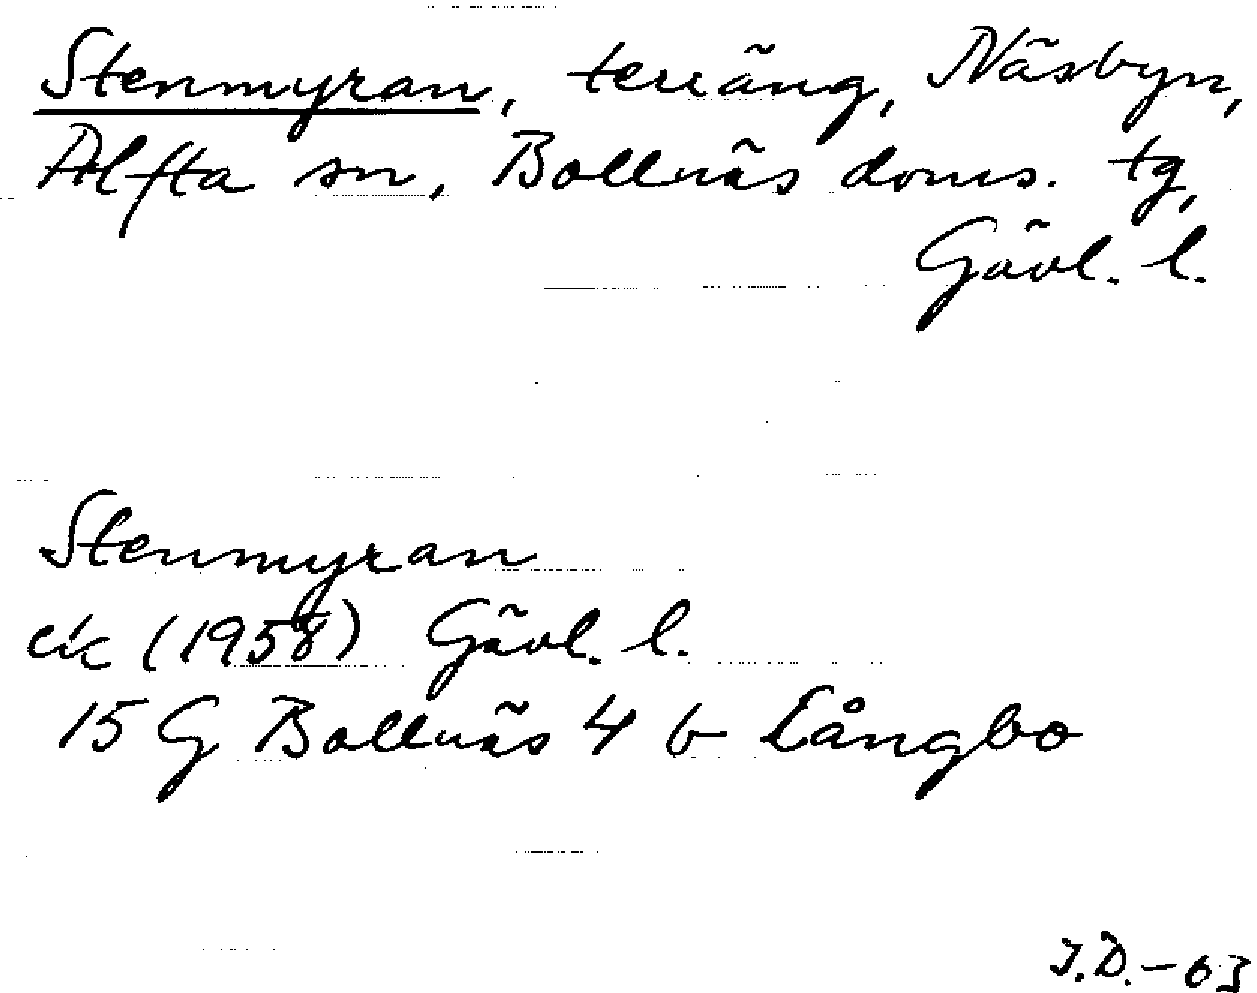 Stenmyran, terräng, Näsbyn,
Alfta sn, Bollnäs doms. tg,
Gävl. l.
Stenmyran
ek (1958) Gävl. l.
15 G Bollnäs 4 b Långbo
I.D.-63